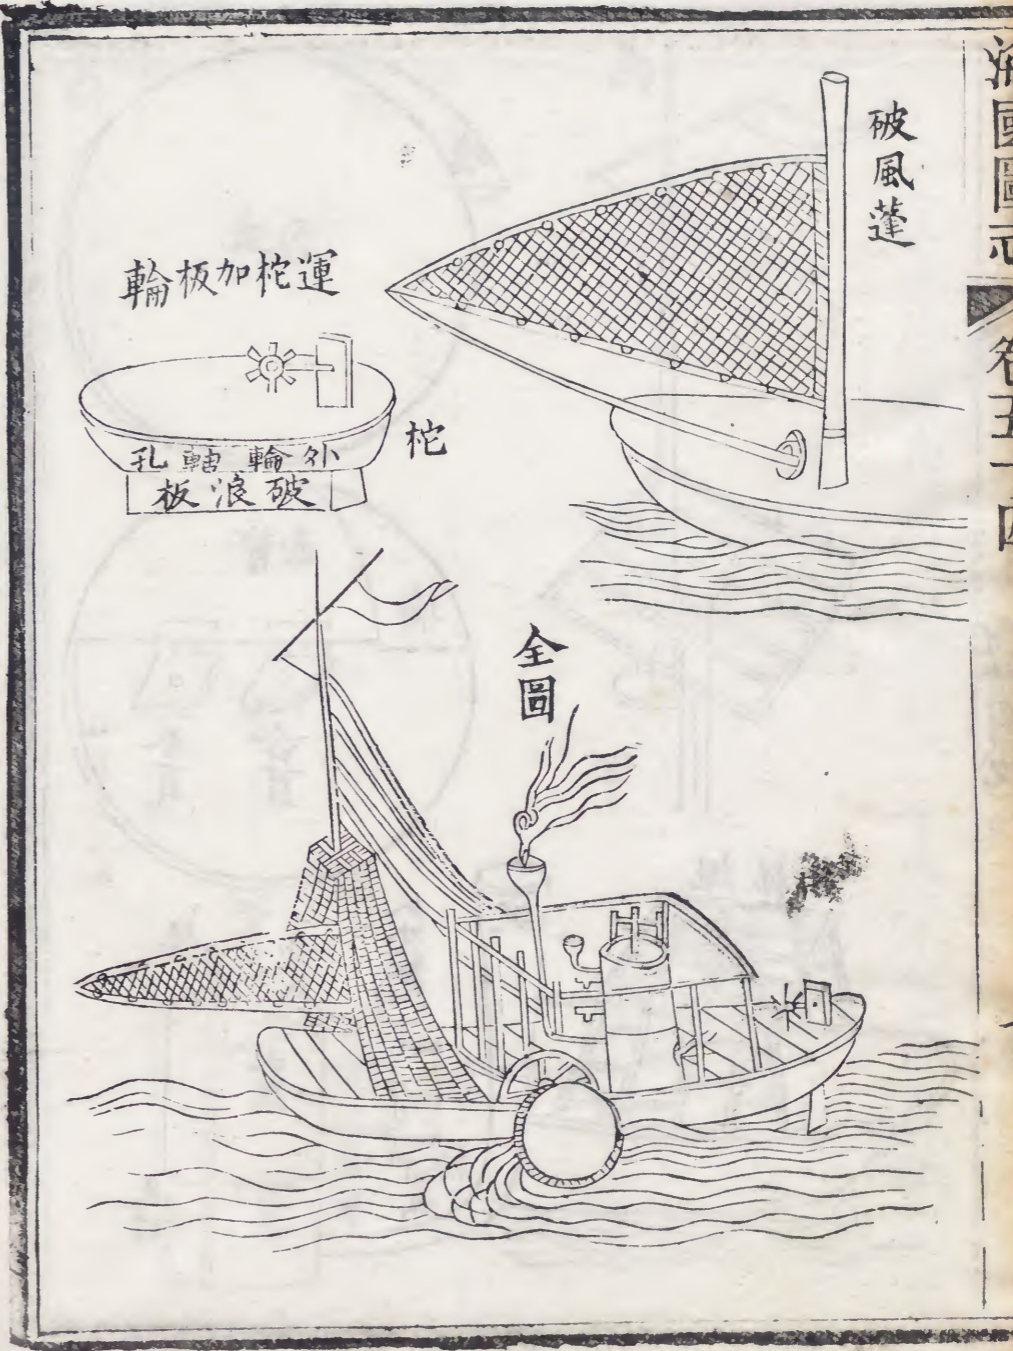 海國圖志
卷五十四
破風蓬
運柁加板輪
柁
外輪軸孔
破浪板
全圖